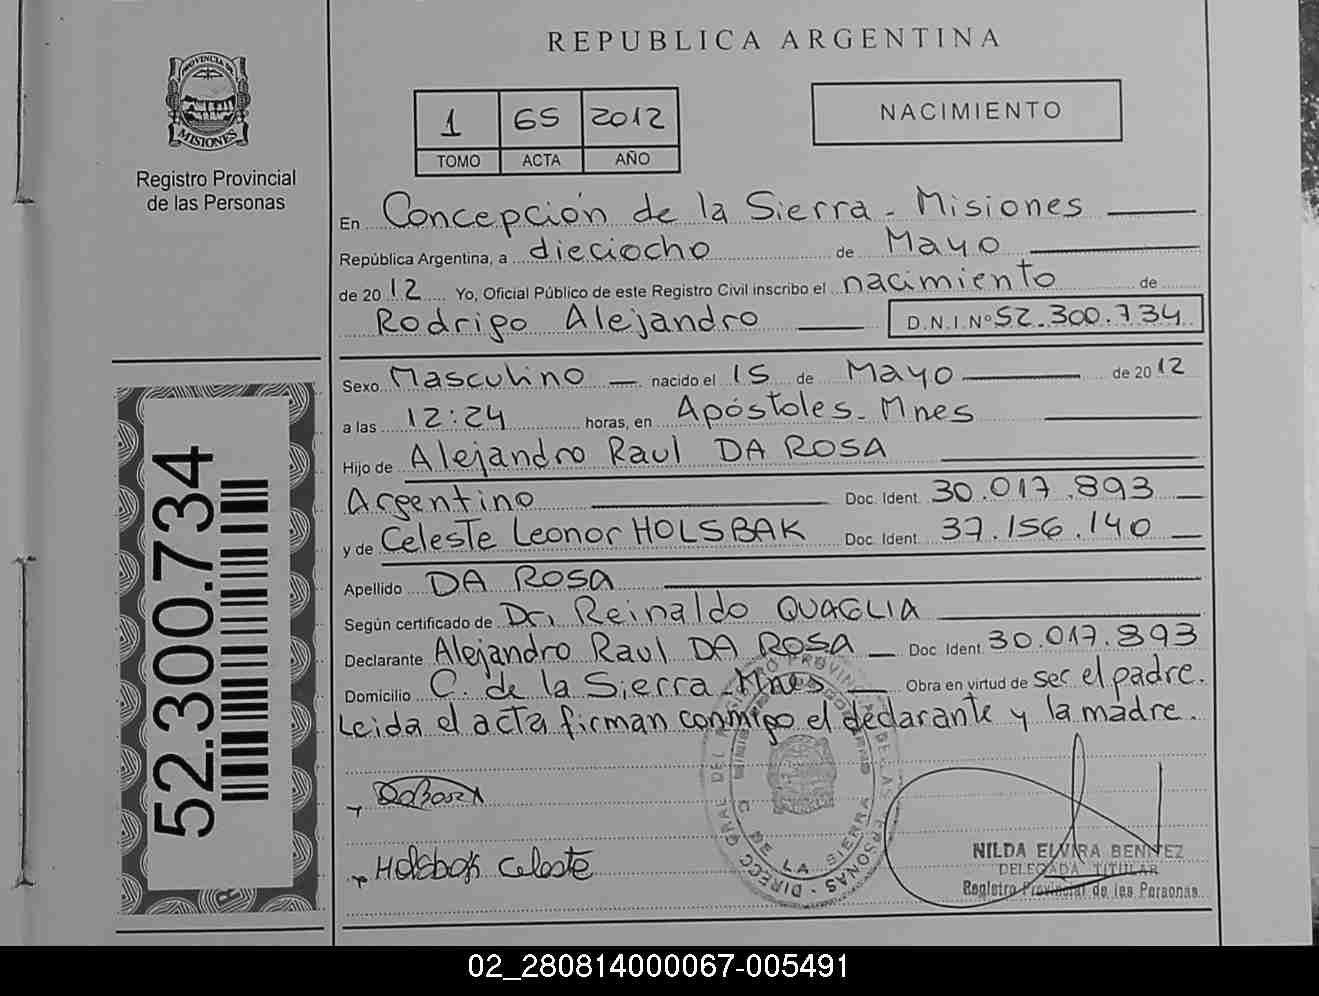 REPUBLICA ARGENTINA
PROVINCIA DE
MISIONES
Registro Provincial
de las Personas
1 65 2012
TOMO ACTA AÑO
NACIMIENTO
En Concepción de la Sierra - Misiones
República Argentina, a dieciocho de Mayo
de 2012 Yo, Oficial Público de este Registro Civil inscribo el nacimiento de
Rodrigo Alejandro D.N.I.Nº 52.300.734
Sexo Masculino nacido el 15 de Mayo de 2012
a las 12:24 horas, en Apóstoles - Mnes
Hijo de Alejandro Raul DA ROSA
Argentino Doc. Ident. 30.017.893
y de Celeste Leonor HOLSBAK Doc. Ident. 37.156.140
Apellido DA ROSA
Según certificado de Dr. Reinaldo QUAGLIA
Declarante Alejandro Raul DA ROSA Doc Ident. 30.017.893
Domicilio C. de la Sierra - Mnes Obra en virtud de ser el padre.
Leida el acta firman conmigo el declarante y la madre.
52.300.734
DaRosa
Holsbak Celeste
C. DE LA SIERRA
NILDA ELVIRA BENITEZ
DELEGADA TITULAR
Registro Provincial de las Personas
02_280814000067-005491